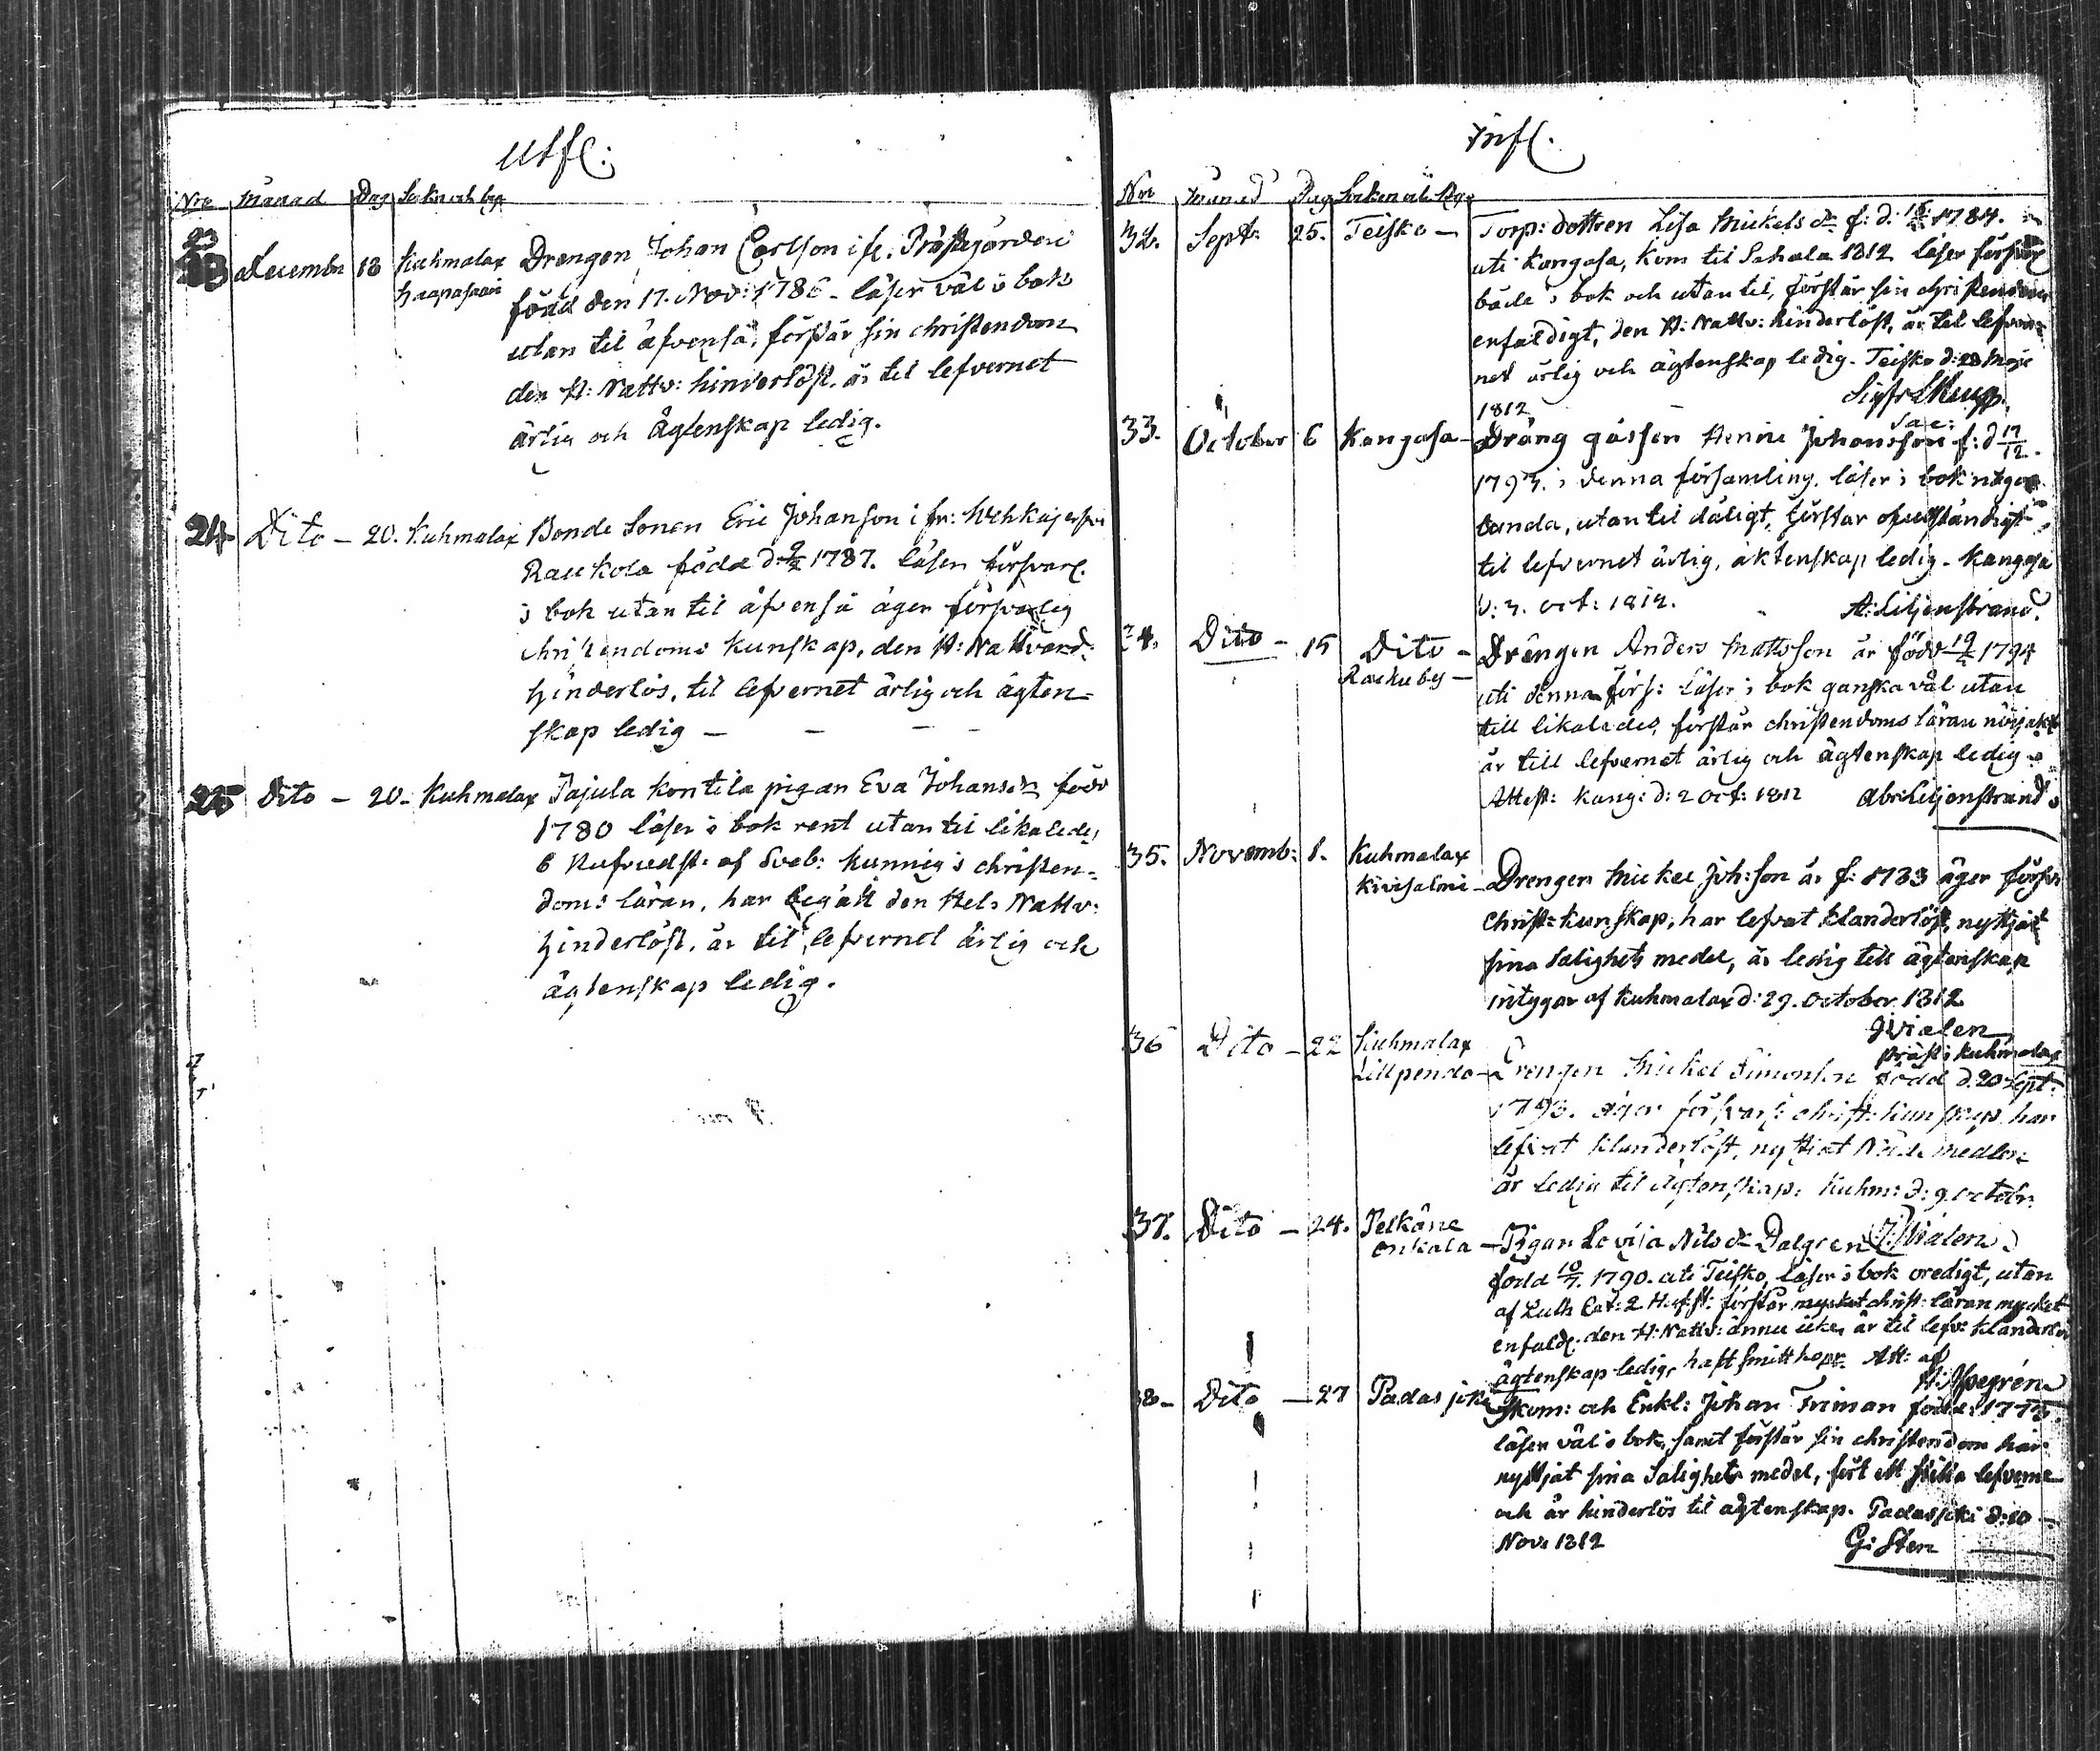 Utfl:
Nro Månad Dag Sokn och by
23
December 13 Kuhmalax Drengen Johan Carlson i fr. Prästegården
Haapasaari född den 17. Nov: 1786 - läser väl i bok
utan til äfvenså, förstår sin christendom
den H: Nattv: hinderlöst, är til lefvernet
ärlig och ägtenskap ledig.
24 Dito - 20. Kuhmalax Bonde Sonen Eric Johanson i fr:
Raukola född d: 1787. läser försvarl.
i bok utan til äfvenså äger försvarlig
christendoms kunskap, den H: Nattvard:
hinderlös, til lefvernet ärlig och ägten=
skap ledig -
25 Dito - 20 - Kuhmalax Pajula Kontila pigan Eva Johans dr född
1780 läser i bok rent utan til likaledes
6 Hufvudst: af Sveb: kunnig i christen=
doms läran, har begått den Hel: Nattv:
hinderlöst, är til lefvernet ärlig och
ägtenskap ledig.
Infl.
Nro Månad Dag Soken och By
32. Sept: 25. Teisko - Torp: dottren Lisa Mickels dr f: d: 1784.
uti Kangasa, kom til Sahala 1812 läser försvarl
både i bok och utan til, förstår sin christendom
enfaldigt, den H: Nattv: hinderlöst, är til lefver=
net ärlig och ägtenskap ledig. Teisko d: 28 Maji
1812
Sac:
33. October 6 Kangasa - Dräng gåssen Henric Johansson f: d 17/12.
1793. i denna församling. läser i bok någor
lunda, utan til dåligt, förstår
til lefvernet ärlig, äktenskap ledig - Kangasa
d: 3. oct: 1812. A: Liljenstrand.
34. Dito - 15 Dito - Drengen Anders Mattsson är född 1794
by - uti denna förs: läser i bok ganska väl utan
till likaledes, förstår christendoms läran nöjaktigt
är till lefvernet ärlig och ägtenskap ledig
Attest: Kang: d: 2 Oct: 1812 Abr: Liljenstrand
35. Novemb: 1. Kuhmalax
Kivisalmi - Drengen Mickel Joh:son är f: 1783 äger försv:
Christ: kunskap, har lefvat klanderlöst, nyttjat
sina Salighets medel, är ledig till ägtenskap
intygar af Kuhmalax d: 29. October 1812
Präst i Kuhmalax
36 Dito - 22 Kuhmalax
- Drengen Mickel Simonson född d. 20 Sept:
1793. äger försvarl: christ: kunskap har
lefvat klanderlöst, nyttjat Nåde medlen
är ledig til ägtenskap. Kuhm: d: 9 octobr:
37. Dito - 24. Pelkäne
Onkala - Pigan Lovisa Nils dr Dalgren
född 10/7. 1790. uti Teisko, läser i bok oredigt, utan
af Luth Cat: 2 Hufst: förstår christ: läran mycket
enfald: den H: Nattv: ännu icke, är til lefv: klanderlös
ägtenskap ledig, haft Smittkopr: Att: af
38 - Dito - 27 Padasjoki
Skom: och Enkl: Johan Friman född: 1775
läser väl i bok, samt förstår sin christendom har
nyttjat sina Salighets medel, fört ett stilla lefverne
och är hinderlös til ägtenskap. Padasjoki d: 10 -
Nov. 1812 G: Sten